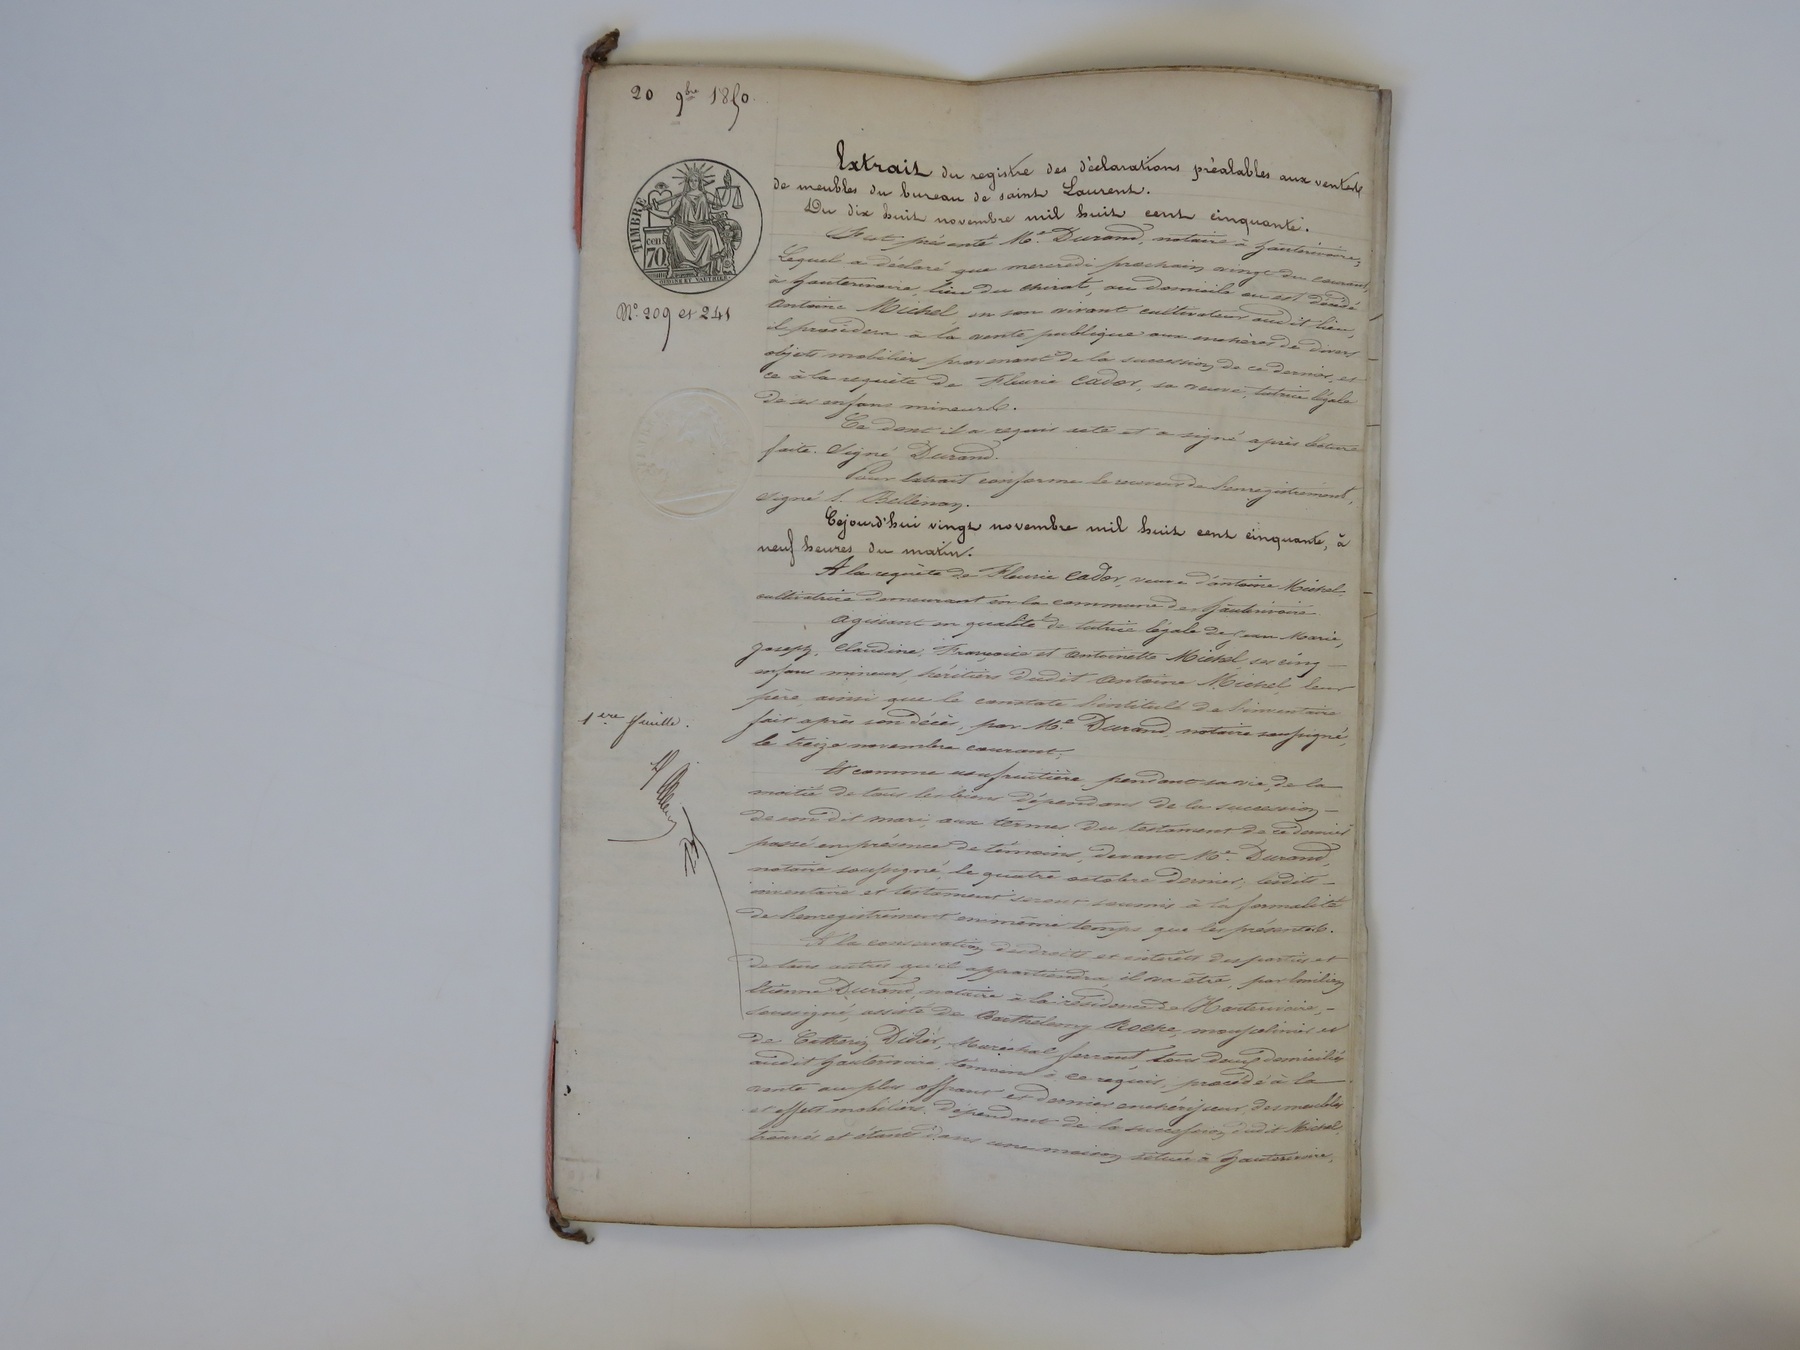 20 9bre 1850.
TIMBRE
cen
70
N° 209 et 241
Extrait du registre des déclarations préalables aux ventes
de meubles du bureau de saint Laurent.
Du dix huit novembre mil huit cent cinquante.
S'est présenté Me. Durand, notaire à hauterivoire,
Lequel a déclaré que mercredi prochain vingt du courant,
à hauterivoire, lieu du chirat, au domicile où est décédé
Antoine Michel en son vivant cultivateur audit lieu,
il procèdera à la vente publique aux enchères de divers
objets mobiliers provenant de la succession de ce dernier, et
ce à la requête de Fleurie Cador, sa veuve, tutrice légale
de ses enfans mineurs.
Ce dont il a requis acte et a signé après lecture
faite. Signé Durand.
Pour extrait conforme le receveur de l'enregistrement,
signé S. Bellenon.
Cejourd'hui vingt novembre mil huit cent cinquante, à
neuf heures du matin.
A la requête de Fleurie Cador, veuve d'antoine Michel,
cultivatrice demeurant en la commune de hauterivoire
Agissant en qualité de tutrice légale de Jean Marie,
Joseph, Claudine, Françoise et Antoinette Michel, ses cinq
enfans mineurs, héritiers dudit Antoine Michel, leur
père, ainsi que le constate l'intitulé de l'inventaire
fait après son décès, par Me. Durand, notaire soussigné,
le treize novembre courant.
1ere feuille.
Et comme usufruitière, pendant sa vie, de la
moitié de tous les biens dépendans de la succession
de son dit mari, aux termes du testament de ce dernier
passé en présence de témoins, devant Me. Durand,
notaire soussigné, le quatre octobre dernier, lesdits
inventaire et testament seront soumis à la formalité
de l'enregistrement en même temps que les présentes.
A la conservation des droits et intérêts des parties et
de tous autres qu'il appartiendra, il va être, par
Etienne Durand, notaire à la résidence de Hauterivoire,
soussigné, assisté de Barthelemy Roche, mousselinier et
de Didier, Maréchal ferrant, tous deux domiciliés
audit hauterivoire, témoins à ce requis, procédé à la
vente au plus offrant et dernier enchérisseur, des meubles
et effets mobiliers, dépendant de la succession dudit Michel,
trouvés et étant dans une maison située à hauterivoire,